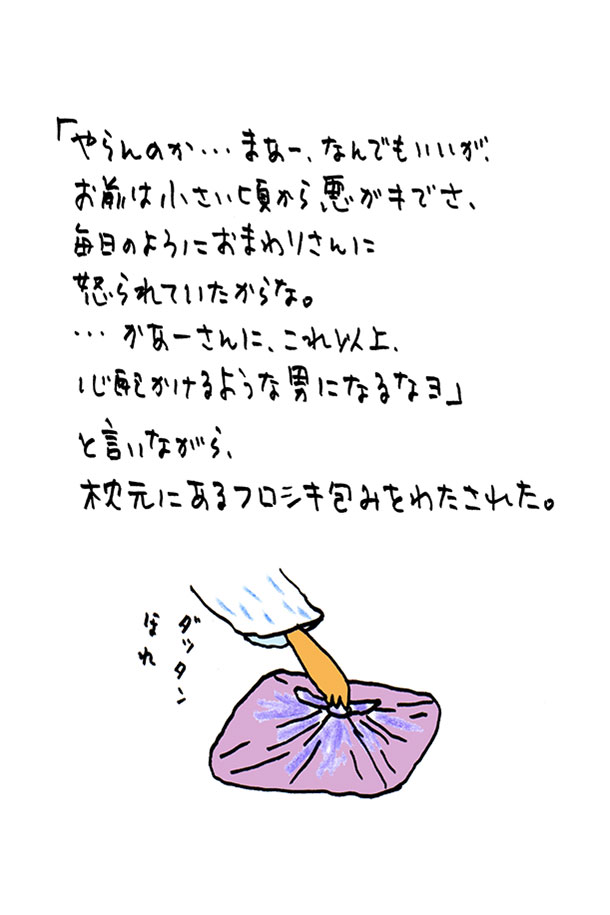 「やらんのか・・・まあー、なんでもいいが、
お前は小さい頃から悪ガキでさ、
毎日のようにおまわりさんに
怒られていたからな。
・・・かあーさんに、これ以上、
心配かけるような男になるなヨ」
と言いながら、
枕元にあるフロシキ包みをわたされた。
ダッタン
ほれ